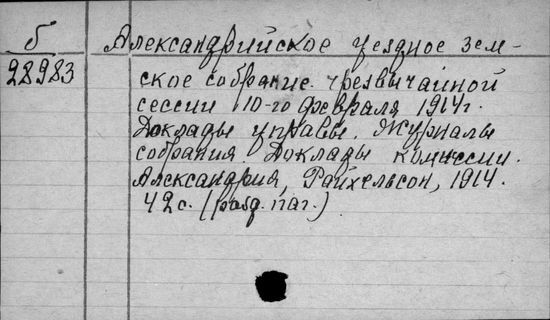 б
28983
Александрийское уездное зем-
ское собрание чрезвычайной
сессии 10-го февраля 1914г.
Доклады управы. Журналы
собрания Доклады комиссии.
Александрия, Райхельсон, 1914.
42с. (разд. паг.)